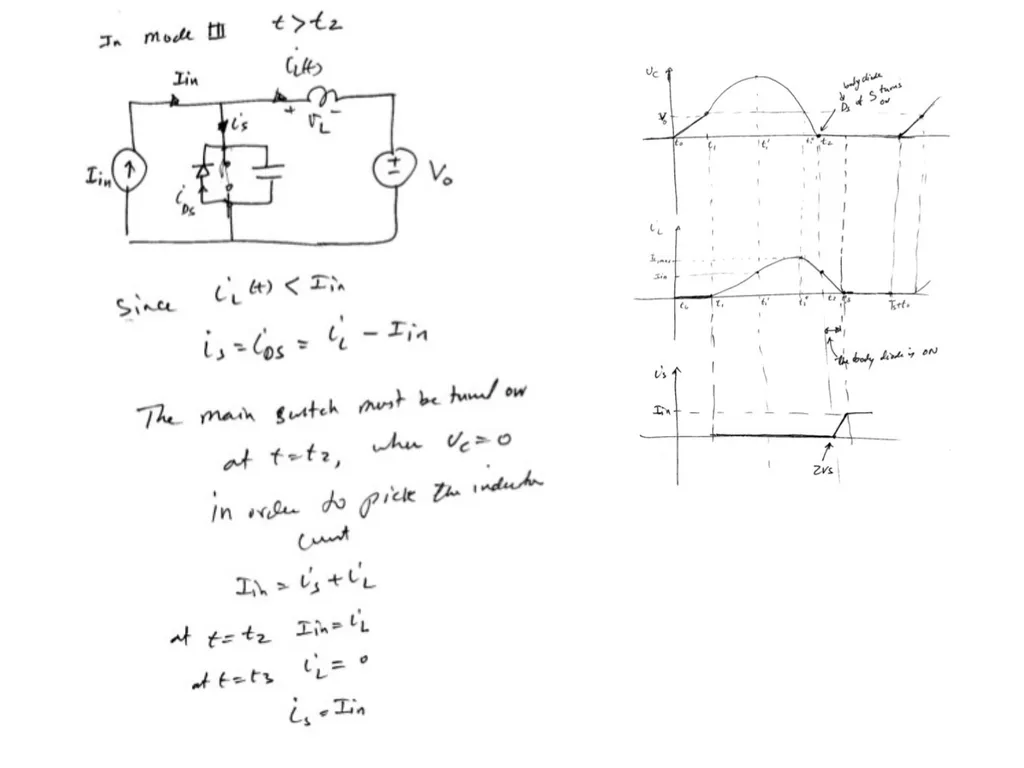 In mode III t > t2
iL(t)
Iin
+ VL -
is
Iin
iDs
+
-
Vo
Since iL(t) < Iin
is = iDs = iL - Iin
The main switch must be turned on
at t=t2, when Vc=0
in order to pick the inductor
current
Iin = is + iL
at t=t2 Iin = iL
at t=t3 iL = 0
is = Iin
Vc
body diode
Ds of S turns
on
Vo
to t1 t1' t1'' t2
iL
Iin
to t1 t1' t1'' t2 t3 Ts+to
the body diode is ON
is
Iin
ZVS